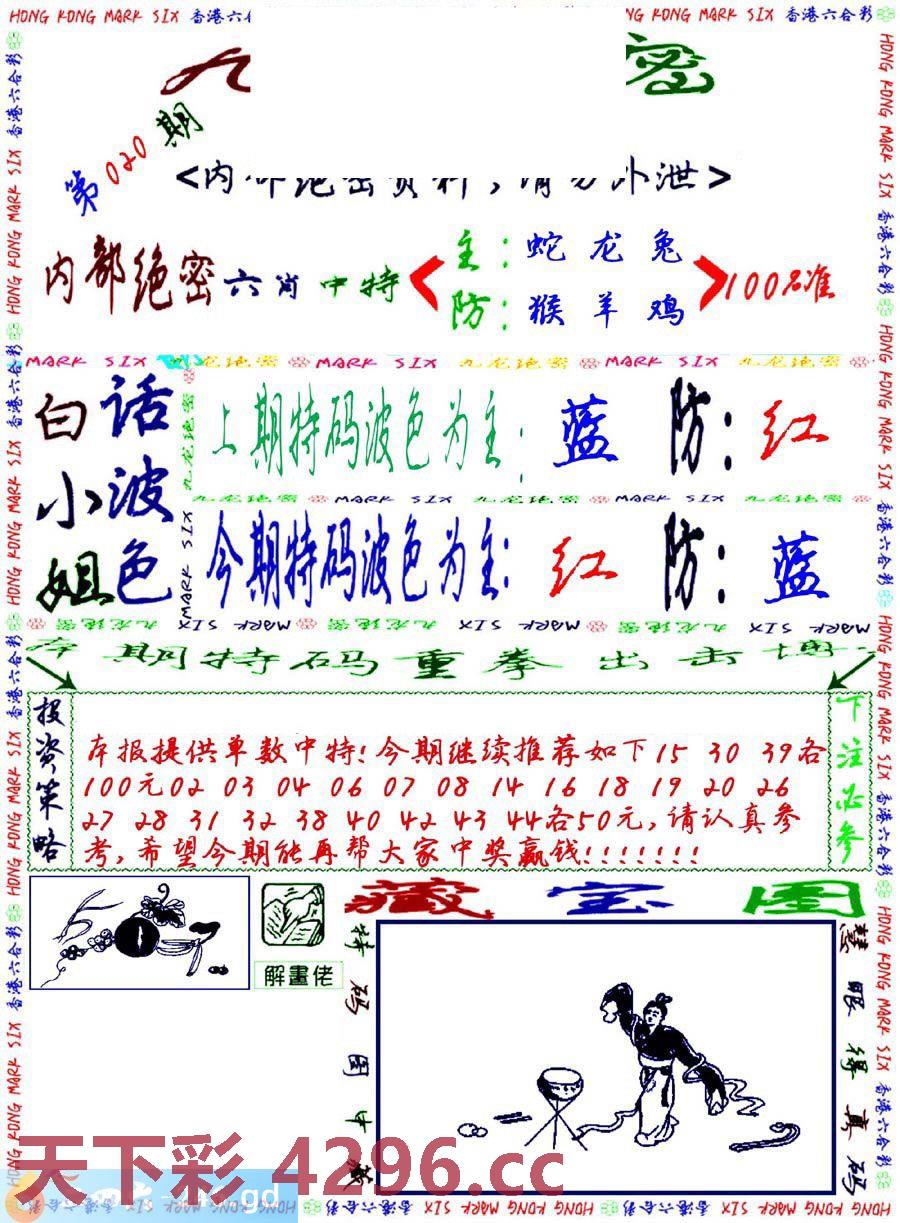 HONG KONG MARK SIX 香港六合彩
NG KONG MARK SIX 香港六合彩
密
第020期
内部绝密六肖中特
主：蛇龙兔
防：猴羊鸡
100%准
MARK SIX 九龙绝密 MARK SIX 九龙绝密 MARK SIX 九龙绝密
白小姐
话波色
上期特码波色为主：蓝 防：红
九龙绝密 MARK SIX 九龙绝密 MARK SIX 九龙绝密
今期特码波色为主：红 防：蓝
MARK SIX 九龙绝密 MARK SIX 九龙绝密 MARK SIX 九龙绝密
期特码重拳出击
投资策略
本报提供单数中特!今期继续推荐如下15 30 39各
100元02 03 04 06 07 08 14 16 18 19 20 26
27 28 31 32 38 40 42 43 44各50元,请认真参
考,希望今期能再帮大家中奖赢钱!!!!!!!
下注必参
解畫佬
藏宝图
特码图中
慧眼得真码
天下彩 4296.cc
gd